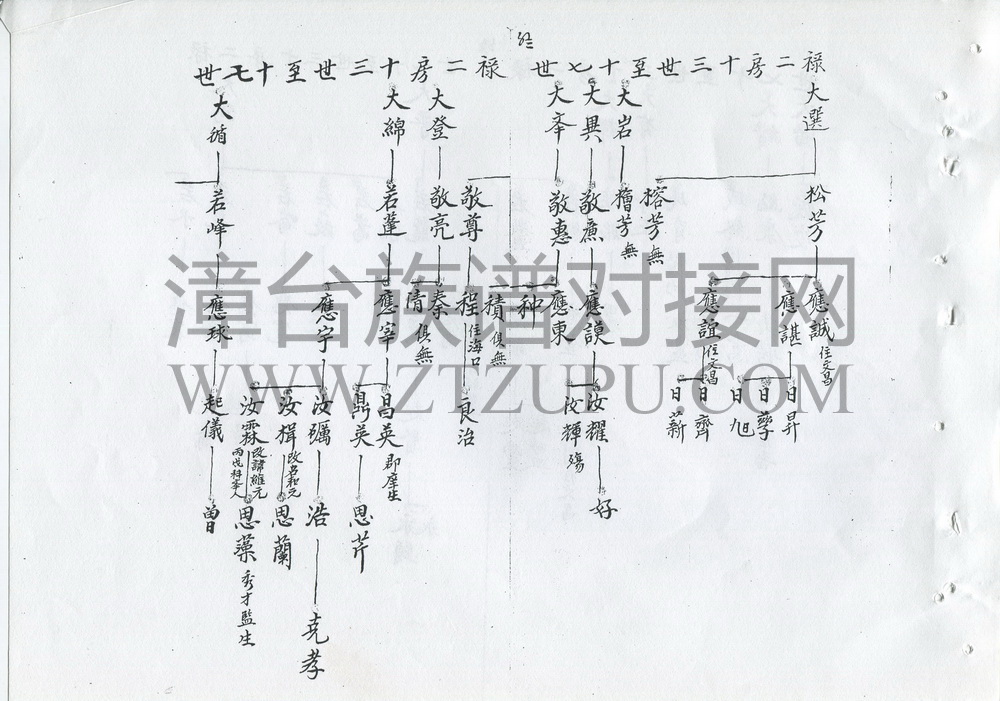 禄二房十三世至十七世
大選
大岩
大異
大夆
松芳
榕芳 無
檜芳 無
敬惠
應誠 住文昌
應諶
應誼 住文昌
應謨
應東
种
積 俱無
日昇
日孳
日旭
日齊
日薪
汝耀
汝輝 殤
好
禄二房十三世至十七世
大登
大綿
大循
敬尊
敬亮
若蓬
若峰
程 住海口
秦
清 俱無
應宰
應宇
應球
良治
昌英 郡庠生
鼎英
汝礪
汝楫 改名和元
汝霖 改諱維元 丙戌科舉人
起儀
思芹
浩
思蘭
思藻 秀才監生
曾
克孝
漳台族谱对接网
WWW.ZTZUPU.COM